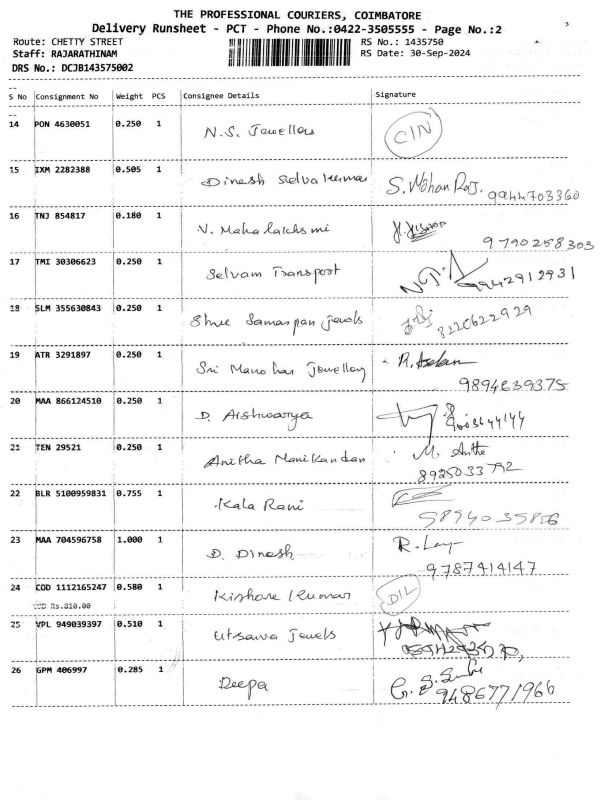 THE PROFESSIONAL COURIERS, COIMBATORE
Delivery Runsheet - PCT - Phone No.:0422-3505555 - Page No.:2
Route: CHETTY STREET RS No.: 1435750
Staff: RAJARATHINAM RS Date: 30-Sep-2024
DRS No.: DCJB143575002
S No Consignment No Weight PCS Consignee Details Signature
14 PON 4630051 0.250 1 N.S. Jewellers CIN
15 IXM 2282388 0.505 1 Dinesh Selvakumar S. Mohan Raj. 9944703360
16 TNJ 854817 0.180 1 V. Mahalakshmi 9790258303
17 TMI 30306623 0.250 1 Selvam Transport 9942912931
18 SLM 355630843 0.250 1 Shree Samaspan jewels 8220622929
19 ATR 3291897 0.250 1 Sri Manohar Jewellery 9894639375
20 MAA 866124510 0.250 1 D. Aishwarya
21 TEN 29521 0.250 1 Anitha Manikandan M. Anthe
8925033792
22 BLR 5100959831 0.755 1 Kala Rani 9894035856
23 MAA 704596758 1.000 1 D. Dinesh 9787414147
24 COD 1112165247 0.580 1 Kishore Kumar DIL
COD Rs.810.00
25 VPL 949039397 0.510 1 Utsava Jewels
26 GPM 406997 0.285 1 Deepa 9486771966